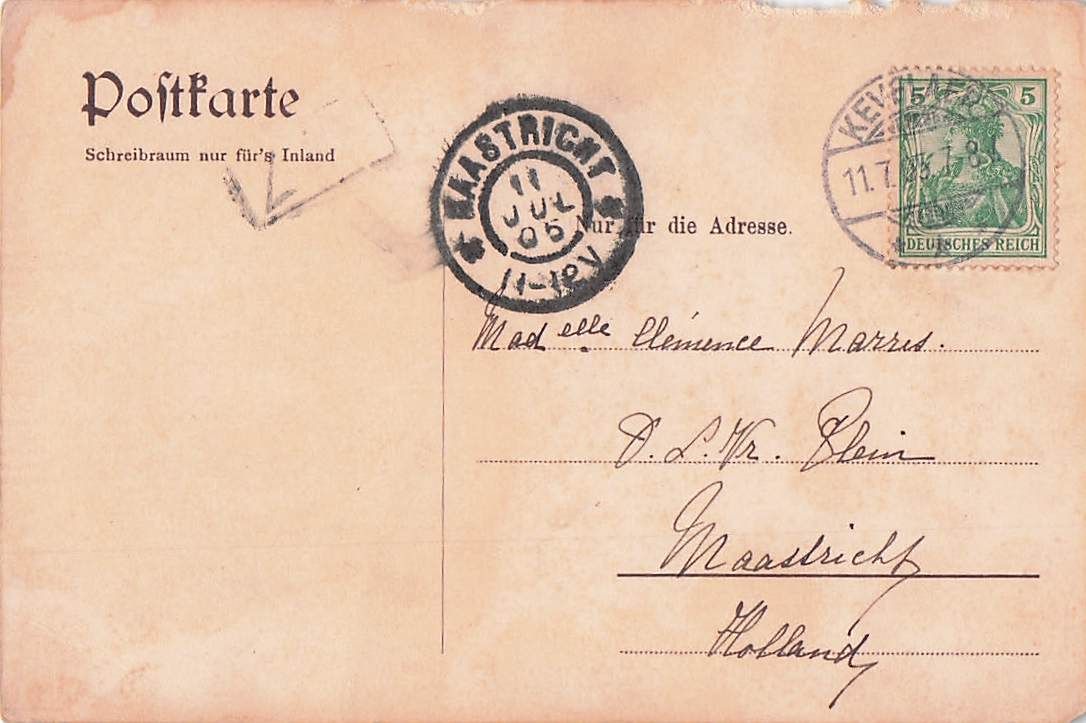 Postkarte
Schreibraum nur für's Inland
MAASTRICHT
11
JUL
06
11-12V
KEVELAER
11.7. 7-8
5 5
DEUTSCHES REICH
Nur für die Adresse.
Mad elle Clémence Marres.
O. L. Vr. Plein
Maastricht
Holland